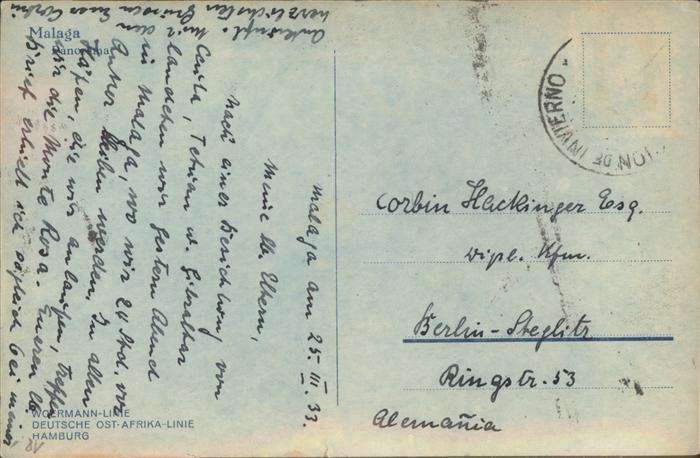 Malaga
Panorama
Malaga am 25. III. 33.
Meine lb. Eltern,
Nach einer Besichtung von
Ceuta, Tetuan u. Gibraltar
landeten wir gestern Abend
in Malaga, wo wir 24 Std. vor
Anker bleiben werden. In allen
Häfen, die wir anlaufen, treffen
wir die Monte Rosa. Eueren lb.
Brief erhielt ich sogleich bei meiner
Ankunft. Mit den
herzlichsten Grüssen Euer Corbin
Corbin Hackinger Esq.
Dipl. Kfm.
Berlin-Steglitz
Ringstr. 53
Alemañia
WOERMANN-LINIE
DEUTSCHE OST-AFRIKA-LINIE
HAMBURG